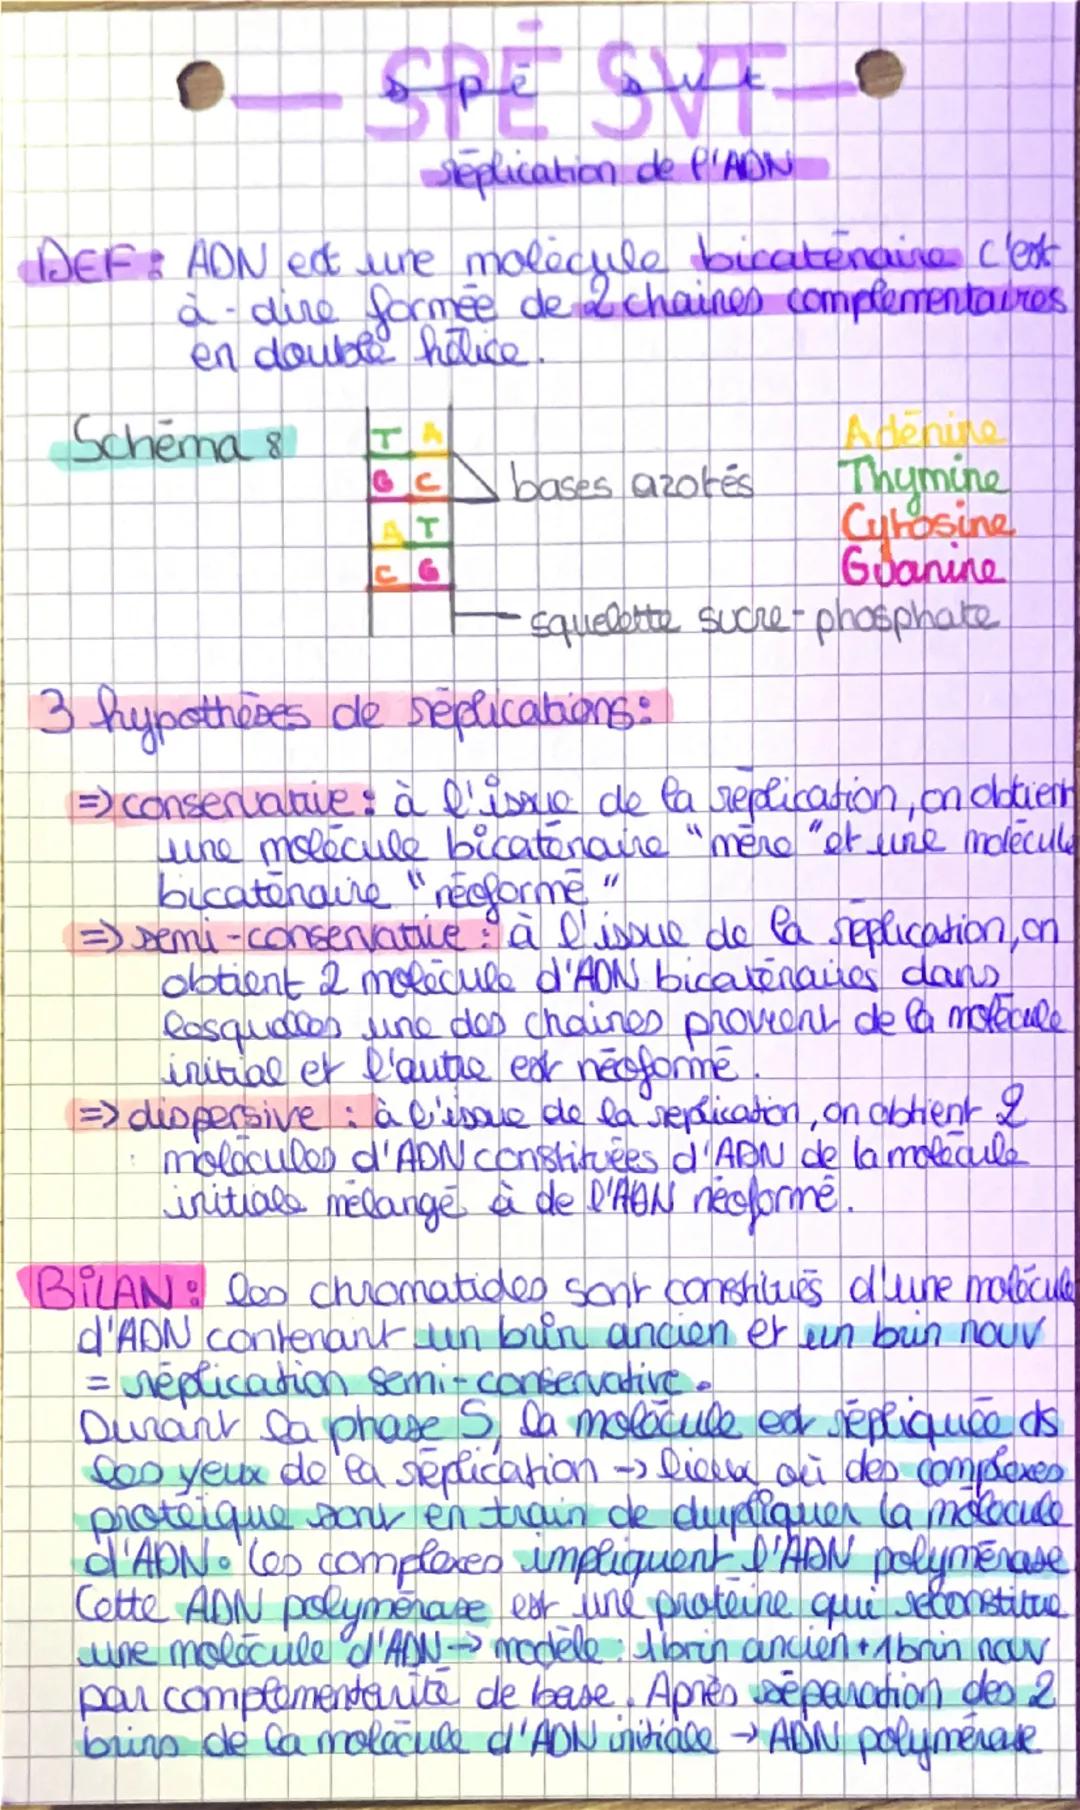 SPÉ SVT
spé svt
réplication de l'ADN
DEF: ADN est une molécule bicaténaire c'est
à-dire formée de 2 chaines complémentaires
en double hélice.
Schéma :
T A
G C
bases azotés
A T
C G
squelette sucre-phosphate
Adénine
Thymine
Cytosine
Guanine
3 hypothèses de réplications:
=> conservative: à l'issue de la réplication, on obtient
une molécule bicaténaire "mère" et une molécule
bicaténaire "néoformé"
=> semi-conservative: à l'issue de la réplication, on
obtient 2 molécule d'ADN bicaténaires dans
lesquelles une des chaines provient de la molécule
initial et l'autre est néoformé.
=> dispersive : à l'issue de la réplication, on obtient 2
molécules d'ADN constituées d'ADN de la molécule
initiale mélangé à de l'ADN néoformé.
BILAN: les chromatides sont constitués d'une molécule
d'ADN contenant un brin ancien et un brin nouv
= réplication semi-conservative.
Durant la phase S, la molécule est répliquée ds
les yeux de la réplication -> lieux où des complexes
protéique sont en train de dupliquer la molécule
d'ADN. Les complexes impliquent l'ADN polymérase
Cette ADN polymérase est une protéine qui reconstitue
une molécule d'ADN -> modèle : 1 brin ancien + 1 brin nouv
par complémentarité de base. Après séparation des 2
brins de la molécule d'ADN initiale -> ADN polymérase